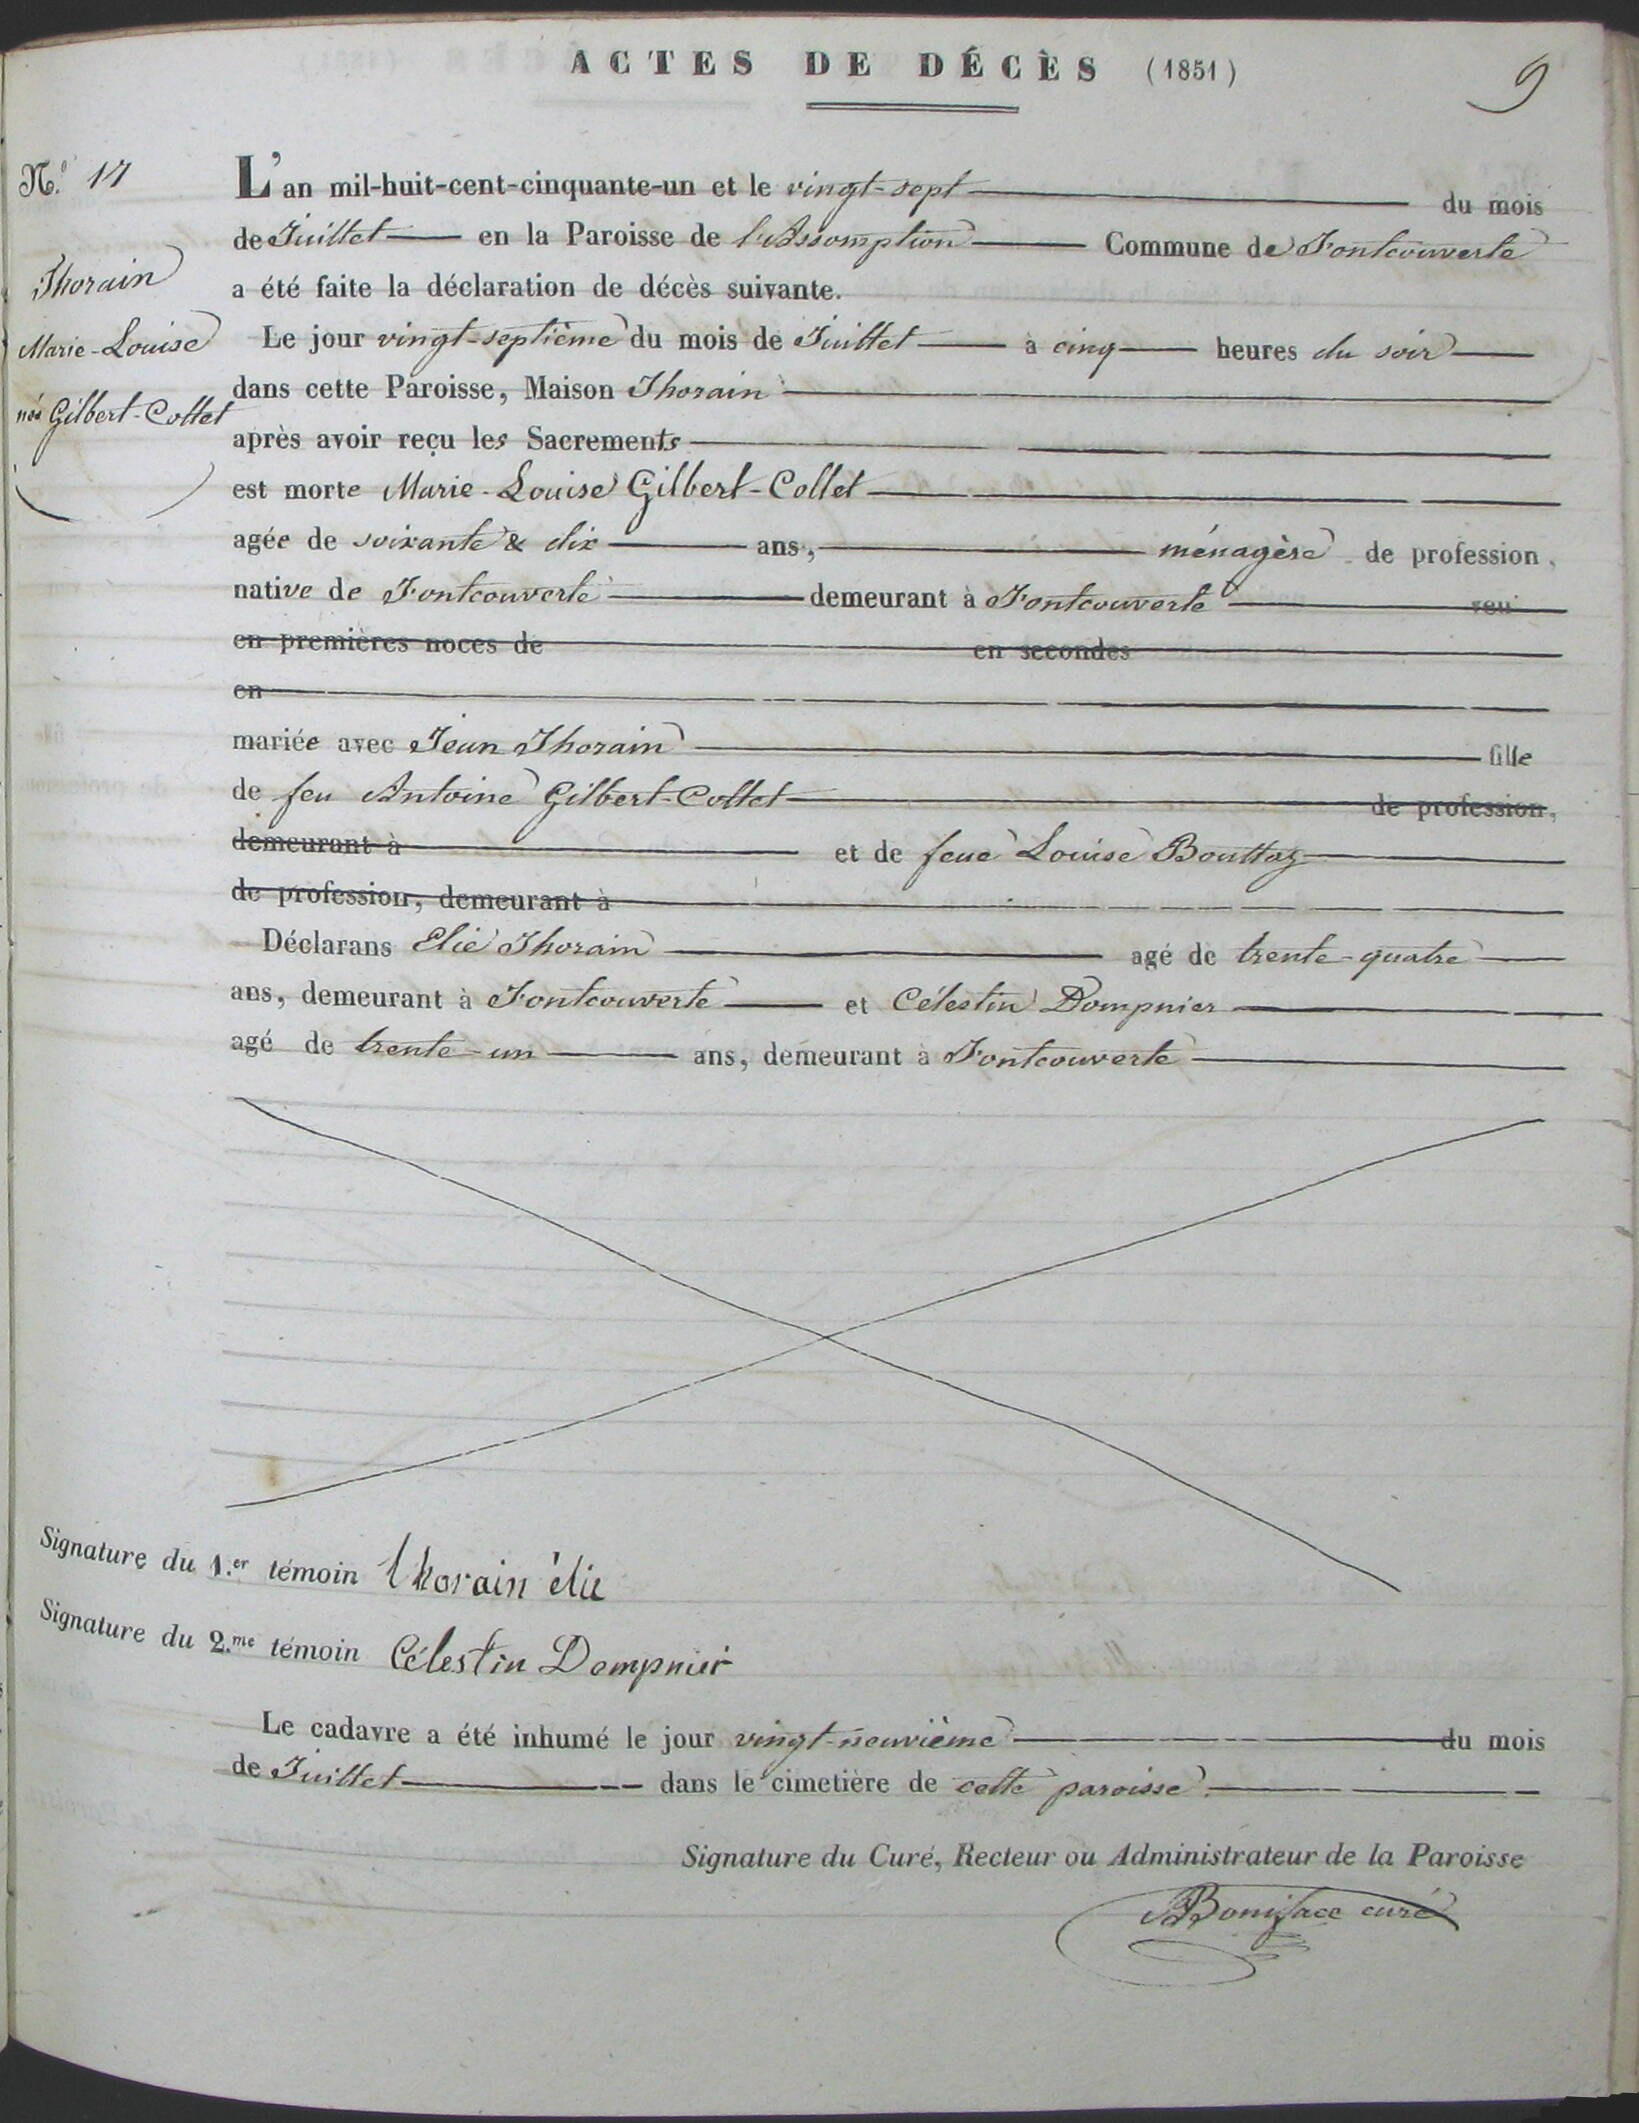 ACTES DE DÉCÈS (1851)
9
N.º 17
Thorain
Marie-Louise
née Gilbert-Collet
L'an mil-huit-cent-cinquante-un et le vingt-sept du mois
de Juillet en la Paroisse de l'Assomption Commune de Fontcouverte
a été faite la déclaration de décès suivante.
Le jour vingt-septième du mois de Juillet à cinq heures du soir
dans cette Paroisse, Maison Thorain
après avoir reçu les Sacrements
est morte Marie-Louise Gilbert-Collet
agée de soixante & dix ans, ménagère de profession,
native de Fontcouverte demeurant à Fontcouverte veu
en premières noces de en secondes
en
mariée avec Jean Thorain fille
de feu Antoine Gilbert-Collet de profession,
demeurant à et de feue Louise Bouttaz
de profession, demeurant à
Déclarans Elie Thorain agé de trente-quatre
ans, demeurant à Fontcouverte et Célestin Dompnier
agé de trente-un ans, demeurant à Fontcouverte
Signature du 1.er témoin thorain élie
Signature du 2.me témoin Célestin Dompnier
Le cadavre a été inhumé le jour vingt-neuvième du mois
de Juillet dans le cimetière de cette paroisse.
Signature du Curé, Recteur ou Administrateur de la Paroisse
Boniface curé